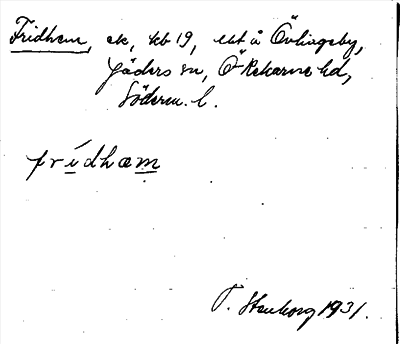 Fridhem, ek, kb 19, ebt å Övlingeby,
Jäders sn, Ö Rekarne hd,
Söderm. l.
fridhæm
T. Stenborg 1931.